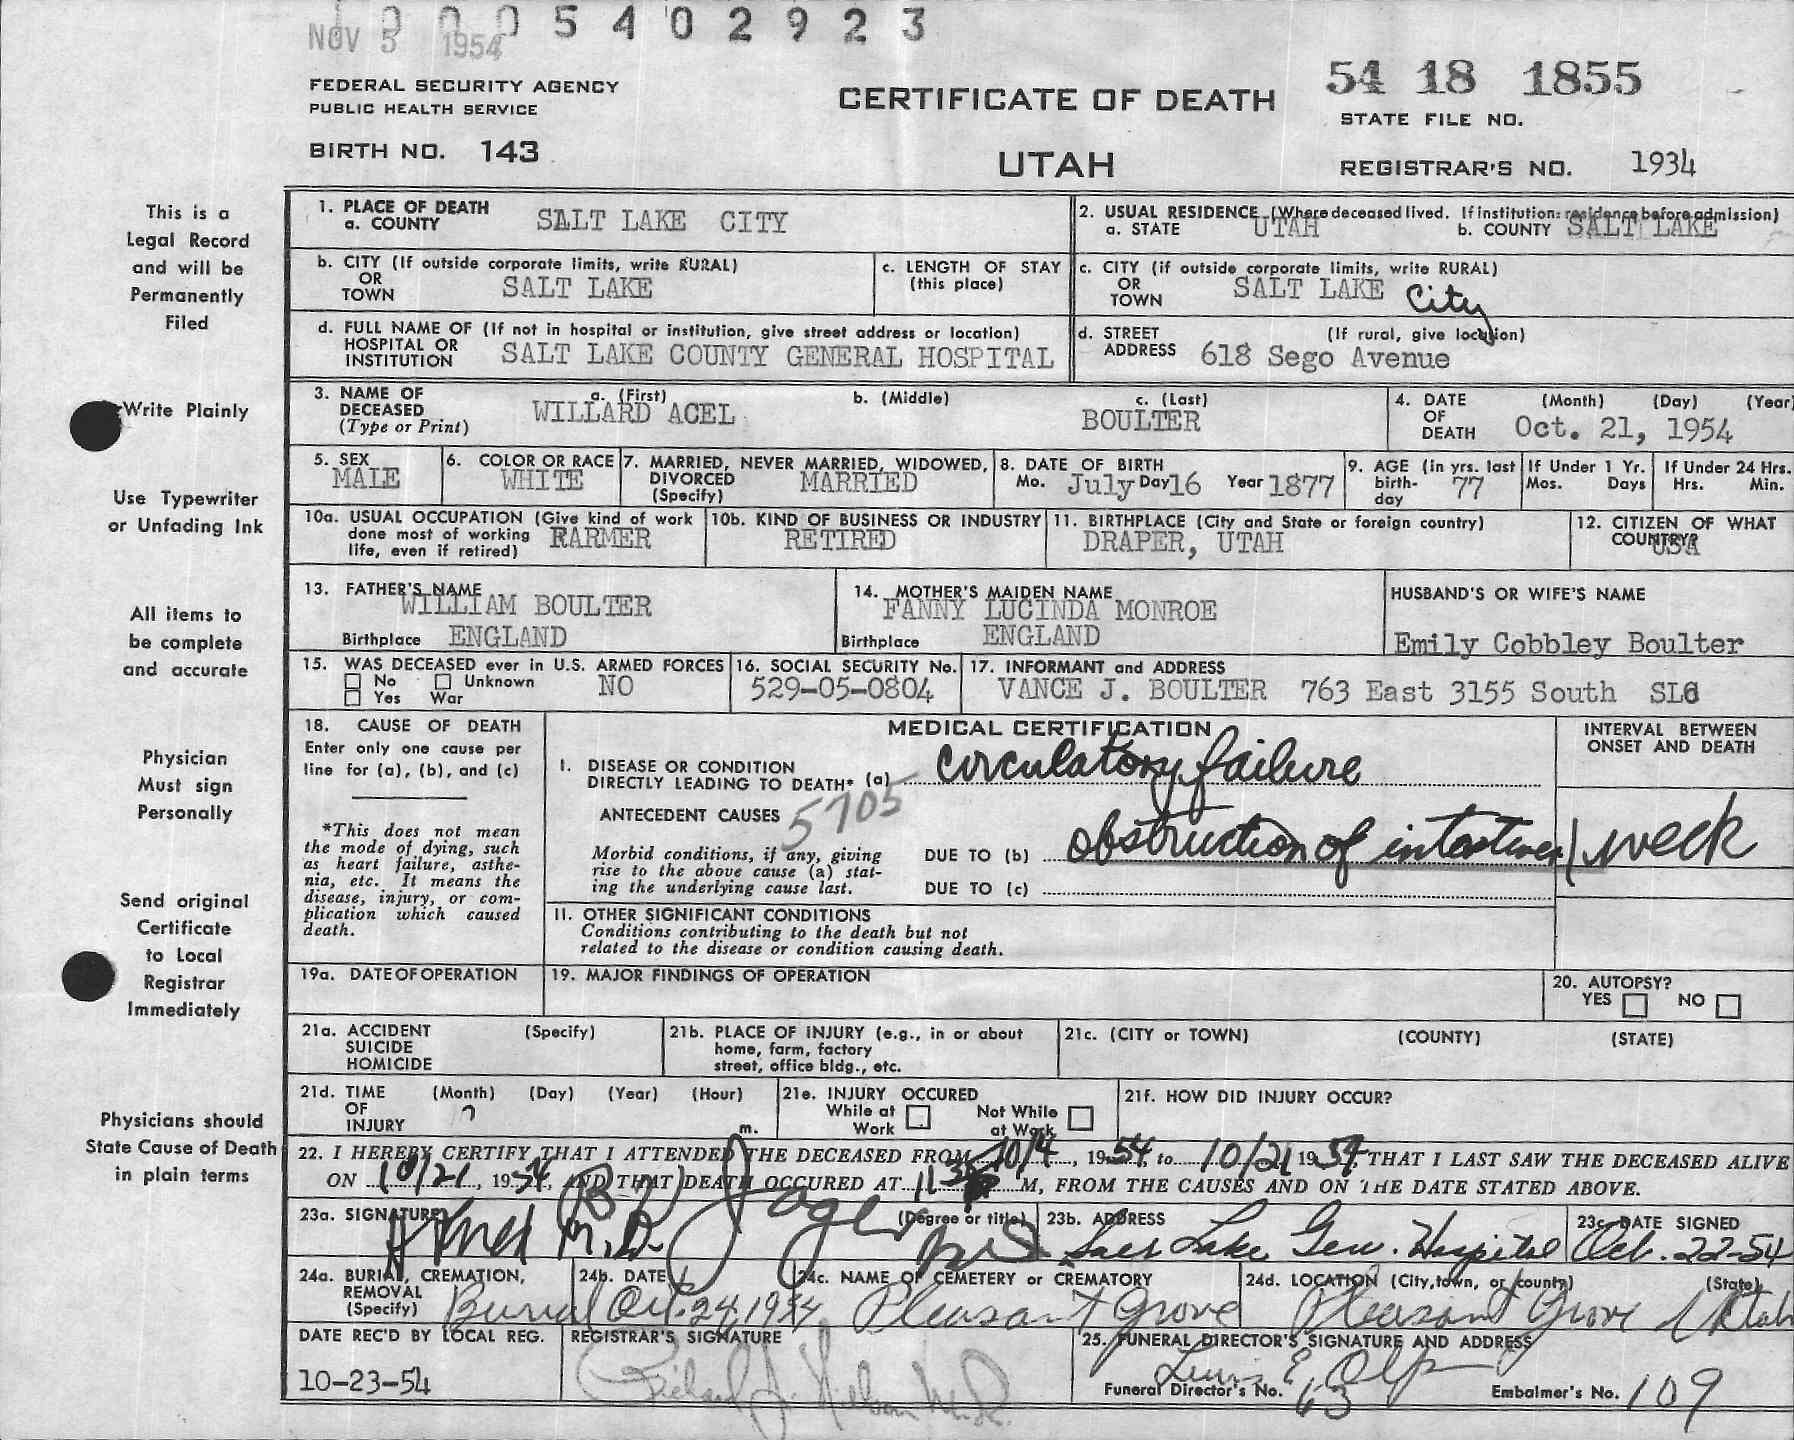 0005402923
NOV 5 1954
FEDERAL SECURITY AGENCY
PUBLIC HEALTH SERVICE
BIRTH NO. 143
CERTIFICATE OF DEATH
UTAH
54 18 1855
STATE FILE NO.
REGISTRAR'S NO. 1934
This is a
Legal Record
and will be
Permanently
Filed
Write Plainly
Use Typewriter
or Unfading Ink
All items to
be complete
and accurate
Physician
Must sign
Personally
Send original
Certificate
to Local
Registrar
Immediately
Physicians should
State Cause of Death
in plain terms
1. PLACE OF DEATH
a. COUNTY SALT LAKE CITY
2. USUAL RESIDENCE (Where deceased lived. If institution: residence before admission)
a. STATE UTAH b. COUNTY SALT LAKE
b. CITY (If outside corporate limits, write RURAL)
OR
TOWN SALT LAKE
c. LENGTH OF STAY
(this place)
c. CITY (if outside corporate limits, write RURAL)
OR
TOWN SALT LAKE City
d. FULL NAME OF (If not in hospital or institution, give street address or location)
HOSPITAL OR
INSTITUTION SALT LAKE COUNTY GENERAL HOSPITAL
d. STREET (If rural, give location)
ADDRESS 618 Sego Avenue
3. NAME OF
DECEASED
(Type or Print)
a. (First) b. (Middle) c. (Last)
WILLARD ACEL BOULTER
4. DATE (Month) (Day) (Year)
OF
DEATH Oct. 21, 1954
5. SEX
MALE
6. COLOR OR RACE
WHITE
7. MARRIED, NEVER MARRIED, WIDOWED,
DIVORCED
(Specify) MARRIED
8. DATE OF BIRTH
Mo. July Day 16 Year 1877
9. AGE (in yrs. last
birth-
day 77
If Under 1 Yr.
Mos. Days
If Under 24 Hrs.
Hrs. Min.
10a. USUAL OCCUPATION (Give kind of work
done most of working
life, even if retired) FARMER
10b. KIND OF BUSINESS OR INDUSTRY
RETIRED
11. BIRTHPLACE (City and State or foreign country)
DRAPER, UTAH
12. CITIZEN OF WHAT
COUNTRY?
USA
13. FATHER'S NAME
WILLIAM BOULTER
Birthplace ENGLAND
14. MOTHER'S MAIDEN NAME
FANNY LUCINDA MONROE
Birthplace ENGLAND
HUSBAND'S OR WIFE'S NAME
Emily Cobbley Boulter
15. WAS DECEASED ever in U.S. ARMED FORCES
No Unknown NO
Yes War
16. SOCIAL SECURITY No.
529-05-0804
17. INFORMANT and ADDRESS
VANCE J. BOULTER 763 East 3155 South SLC
18. CAUSE OF DEATH
Enter only one cause per
line for (a), (b), and (c)
*This does not mean
the mode of dying, such
as heart failure, asthe-
nia, etc. It means the
disease, injury, or com-
plication which caused
death.
MEDICAL CERTIFICATION
I. DISEASE OR CONDITION
DIRECTLY LEADING TO DEATH* (a) circulatory failure
ANTECEDENT CAUSES 5705
Morbid conditions, if any, giving
rise to the above cause (a) stat-
ing the underlying cause last.
DUE TO (b) obstruction of intestines
DUE TO (c)
INTERVAL BETWEEN
ONSET AND DEATH
1 week
II. OTHER SIGNIFICANT CONDITIONS
Conditions contributing to the death but not
related to the disease or condition causing death.
19a. DATE OF OPERATION
19. MAJOR FINDINGS OF OPERATION
20. AUTOPSY?
YES NO
21a. ACCIDENT (Specify)
SUICIDE
HOMICIDE
21b. PLACE OF INJURY (e.g., in or about
home, farm, factory
street, office bldg., etc.
21c. (CITY or TOWN) (COUNTY) (STATE)
21d. TIME (Month) (Day) (Year) (Hour)
OF
INJURY m.
21e. INJURY OCCURED
While at Work Not While at Work
21f. HOW DID INJURY OCCUR?
22. I HEREBY CERTIFY THAT I ATTENDED THE DECEASED FROM 10/4, 1954, to 10/21 1954, THAT I LAST SAW THE DECEASED ALIVE
ON 10/21, 1954, AND THAT DEATH OCCURED AT 11 M, FROM THE CAUSES AND ON THE DATE STATED ABOVE.
23a. SIGNATURE (Degree or title)
23b. ADDRESS
Salt Lake Gen. Hospital
23c. DATE SIGNED
Oct. 22-54
24a. BURIAL, CREMATION,
REMOVAL
(Specify) Burial
24b. DATE
Oct. 24, 1954
24c. NAME OF CEMETERY or CREMATORY
Pleasant Grove
24d. LOCATION (City, town, or county) (State)
Pleasant Grove Utah
DATE REC'D BY LOCAL REG.
10-23-54
REGISTRAR'S SIGNATURE
Richard
25. FUNERAL DIRECTOR'S SIGNATURE AND ADDRESS
Lewis E Olp
Funeral Director's No. 63 Embalmer's No. 109